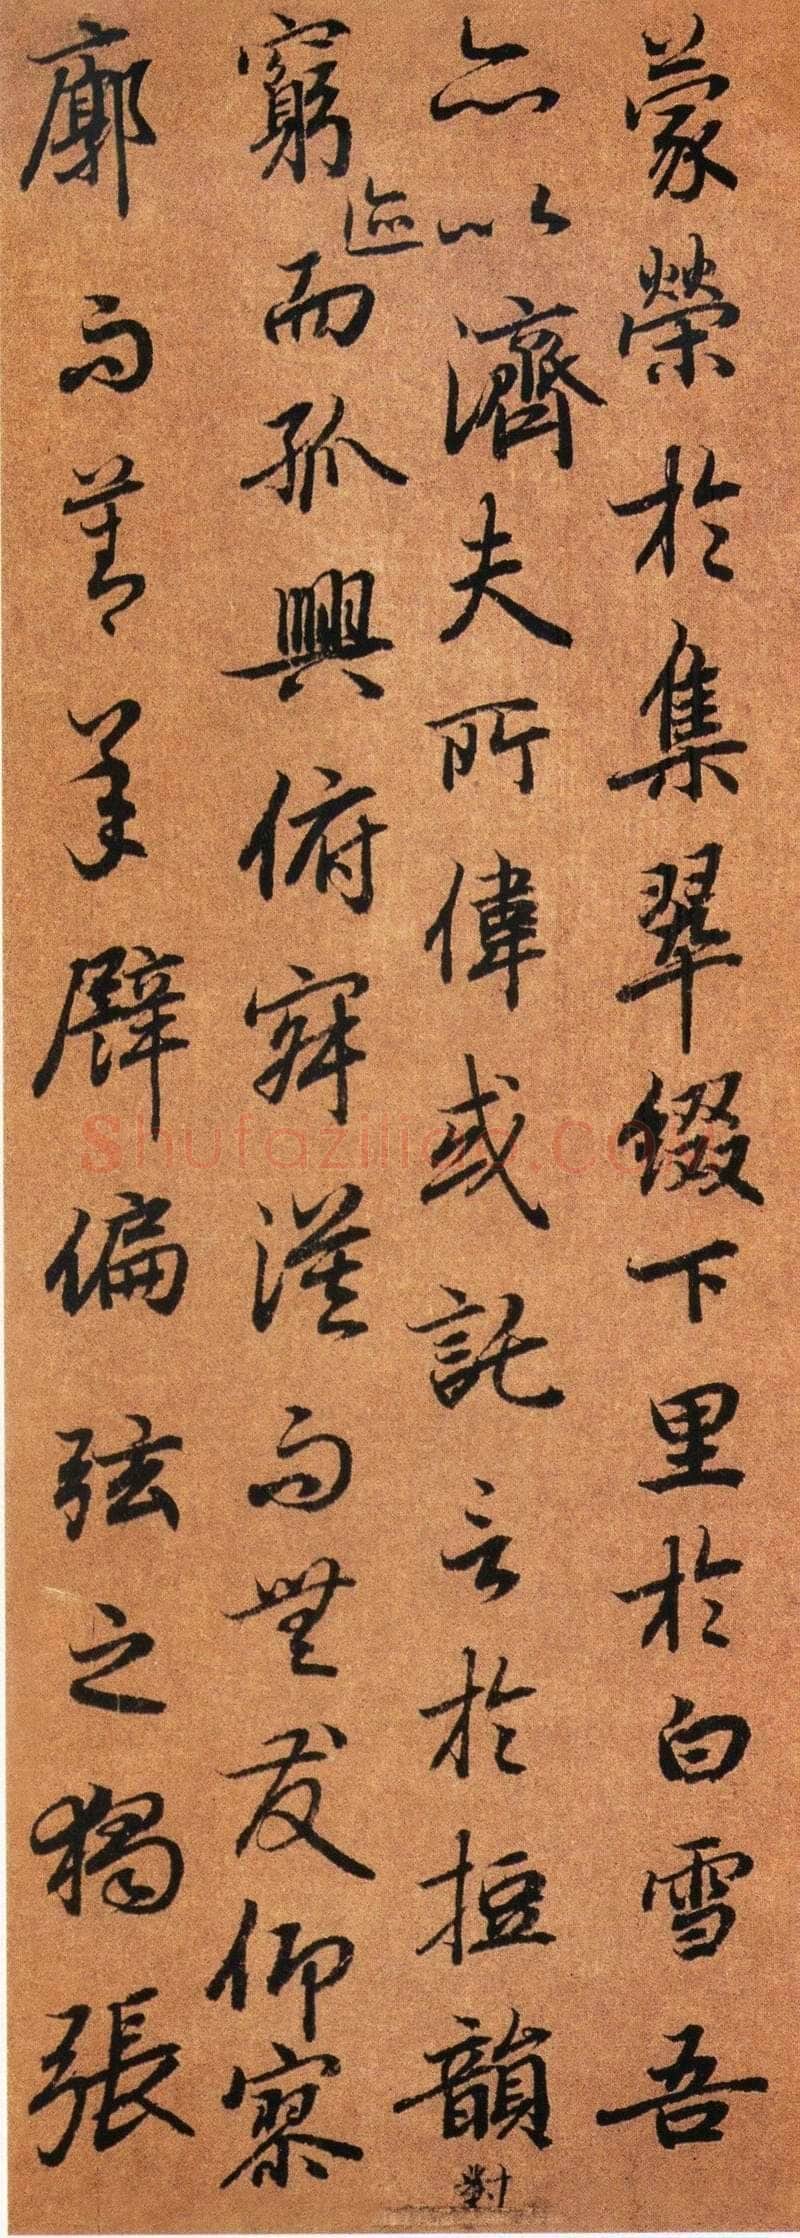 蒙榮於集翠綴下里於白雪吾
亦以濟夫所偉或託言於短韻對
窮迹而孤興俯寂漠而無友仰寥
廓而莫承譬偏弦之獨張
shufaziliao.com